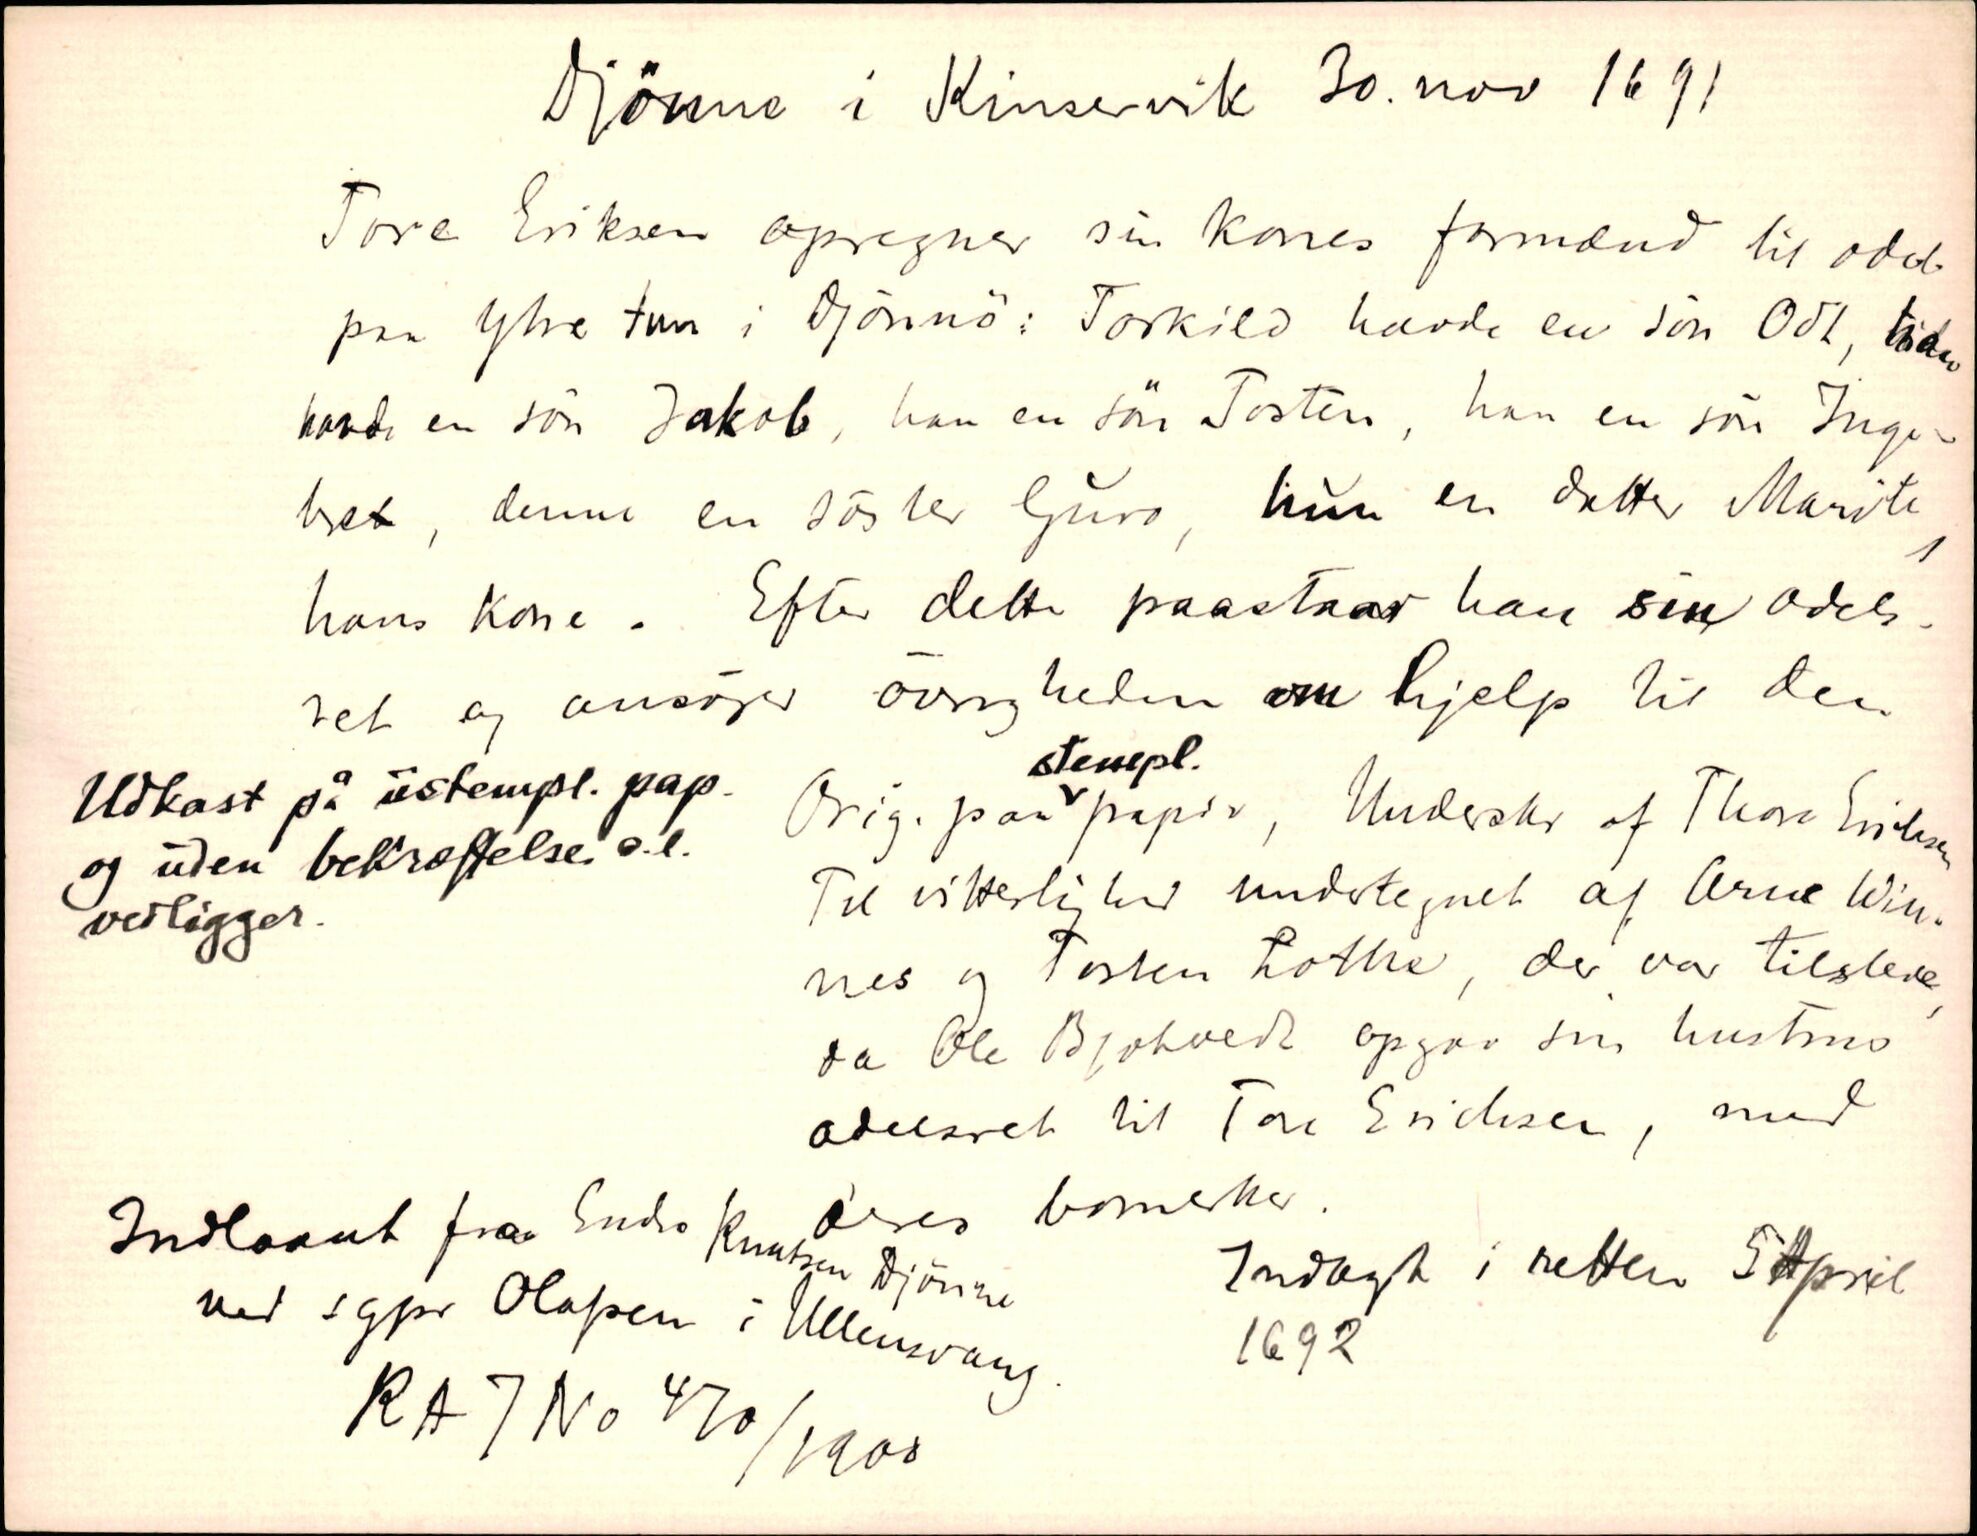 Djönne i Kinservik 30. nov 1691
Tore Eriksen opregner sin kones formænd til odel
paa Ytre tun i Djönnö: Torkild havde en sön Odt,
havde en sön Jakob, han en sön Tosten, han en sön Inge-
bret, denne en söster Guro, hun en datter Marite,
hans kone. Efter dette paastaar han sin odels-
ret og ansöger övrigheden om hjelp til den
Orig. paa stempl. papir, Underskr af Thore Erichsen
Til vitterlighed undertegnet af Arne Win-
nes og Tosten Lothe, der var tilstede,
da Ole Bjotvedt opgav sin hustrus
odelsret til Tore Erichsen, med
deres bomerker.
Udkast på ustempl. pap.
og uden bekræftelse o.l.
vedligger.
Indlaant fra Endre Knutsen Djönne
ved sgpr Olafsen i Ullensvang.
RA J No 470/1900
Indlagt i retten 5 April
1692